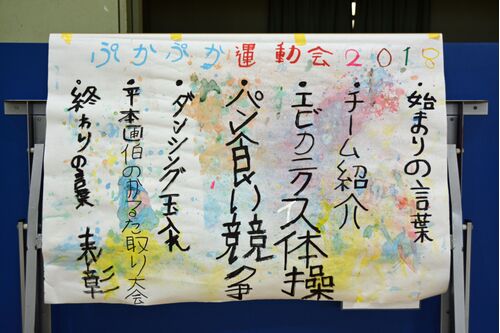 ぷかぷか運動会2018
・始まりの言葉
・チーム紹介
・エビカニクス体操
・パン食い競争
・ダッシング玉入れ
・平本画伯のかるた取り大会
・終わりの言葉 表彰